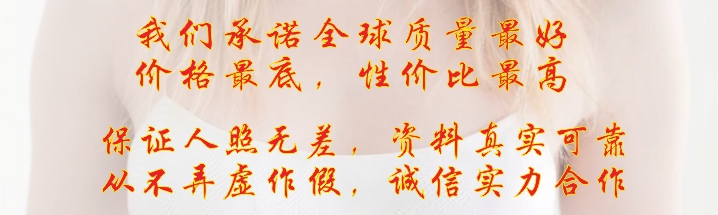 我们承诺全球质量最好
价格最底，性价比最高
保证人照无差，资料真实可靠
从不弄虚作假，诚信实力合作